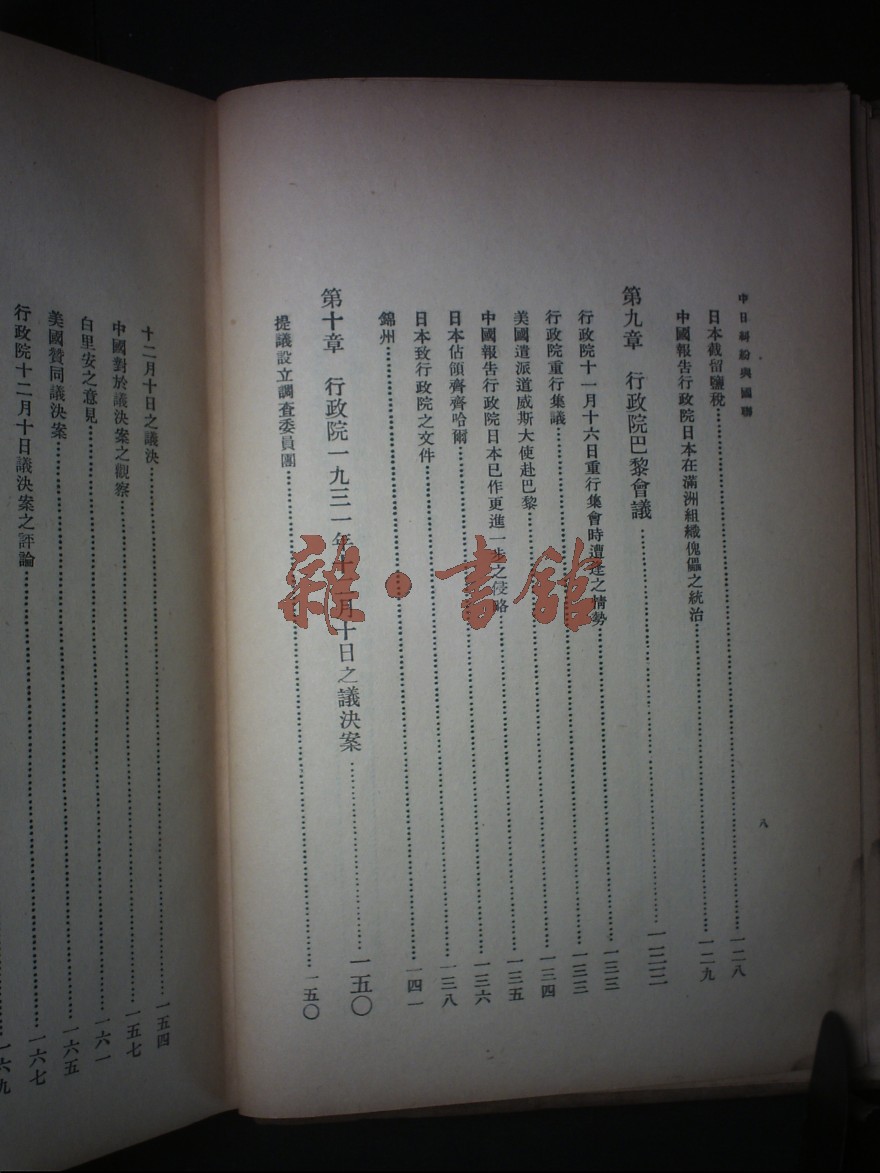 中日糾紛與國聯
日本截留鹽稅……一二八
中國報告行政院日本在滿洲組織傀儡之統治……一二九
第九章 行政院巴黎會議……一三三
行政院十一月十六日重行集會時遭逢之情勢……一三三
行政院重行集議……一三四
美國遣派道威斯大使赴巴黎……一三五
中國報告行政院日本已作更進一步之侵略……一三六
日本佔領齊齊哈爾……一三八
日本致行政院之文件……一四一
錦州
第十章 行政院一九三一年十二月十日之議決案……一五〇
提議設立調查委員團……一五〇
八
十二月十日之議決……一五四
中國對於議決案之觀察……一五七
白里安之意見……一六一
美國贊同議決案……一六五
行政院十二月十日議決案之評論……一六七
一六九
雜·書館